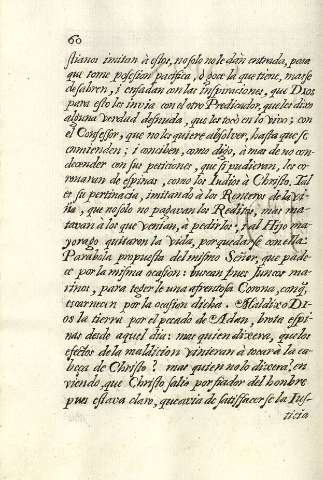 60
stianos imitan à estos, no solo no le dàn entrada, para
que tome posesion pacifica, ò goce la que tiene, mas se
desabren, i enfadan con las inspiraciones, que DIOS
para esto les invia con el otro Predicador, que les dixo
alguna verdad desnuda, que les tocò en lo vivo; con
el Confessor, que no les quiere absolver, hasta que se
enmienden: i anciben, como digo, a mas de no con-
decender con sus peticiones, que si pudieran, les co-
ronaran de espinas, como los Iudios à Christo. Tal
es su pertinacia, imitando à los Renteros de la vi-
ña, que no solo no pagavan los Reditos, mas ma-
tavan à los que venian, a pedirlos: i al Hijo ma-
yorazgo quitaron la vida, por quedarse con ella.
Parabola propuesta del mismo Señor, que pade-
ce por la misma ocasion: buscan pues Iuncos ma-
rinos, para texer le una afrentosa Corona, con q̃
escarnecen por la ocasion dicha. Maldixo DI-
OS la tierra por el pecado de Adan, brota espi-
nas desde aquel dia: mas quien dixera, que los
efectos de la maldicion vinieran à tocar à la ca-
beça de Christo? mar quien no lo dixera! en
viendo, que Christo saliò por fiador del hombre
pues estava claro, que avia de satisfacer se la Ius-
ticia